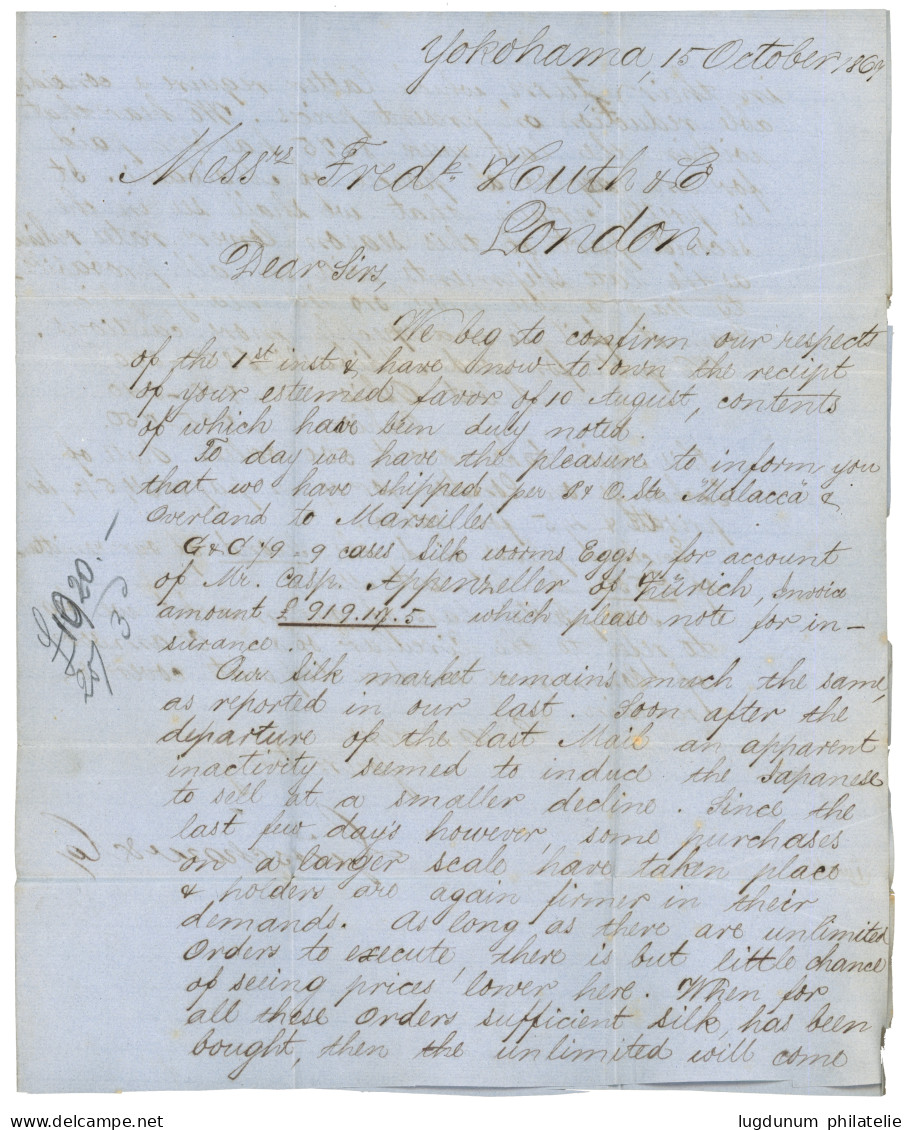 Yokohama, 15 October 1867
Messrs Fredk. Huth & C
London.
Dear Sirs,
We beg to confirm our respects
of the 1st inst & have now to own the receipt
of your esteemed favor of 10 August, contents
of which have been duly noted.
To day we have the pleasure to inform you
that we have shipped per P & O. Str "Malacca" &
Overland to Marseilles
G & C 1/9 9 cases Silk worms Eggs, for account
of Mr. Casp. Appenzeller of Zürich, Invoice
amount £ 919.17.5 which please note for in-
surance.
£1920.-
Our Silk market remains much the same,
as reported in our last. Soon after the
departure of the last Mail an apparent
inactivity seemed to induce the Japanese
to sell at a smaller decline. Since the
last few day's however, some purchases
on a larger scale have taken place
& holders are again firmer in their
demands. As long as there are unlimited
Orders to execute there is but little chance
of seeing prices' lower here. When for
all these Orders sufficient silk, has been
bought, then the unlimited will come
lugdunum philatelie